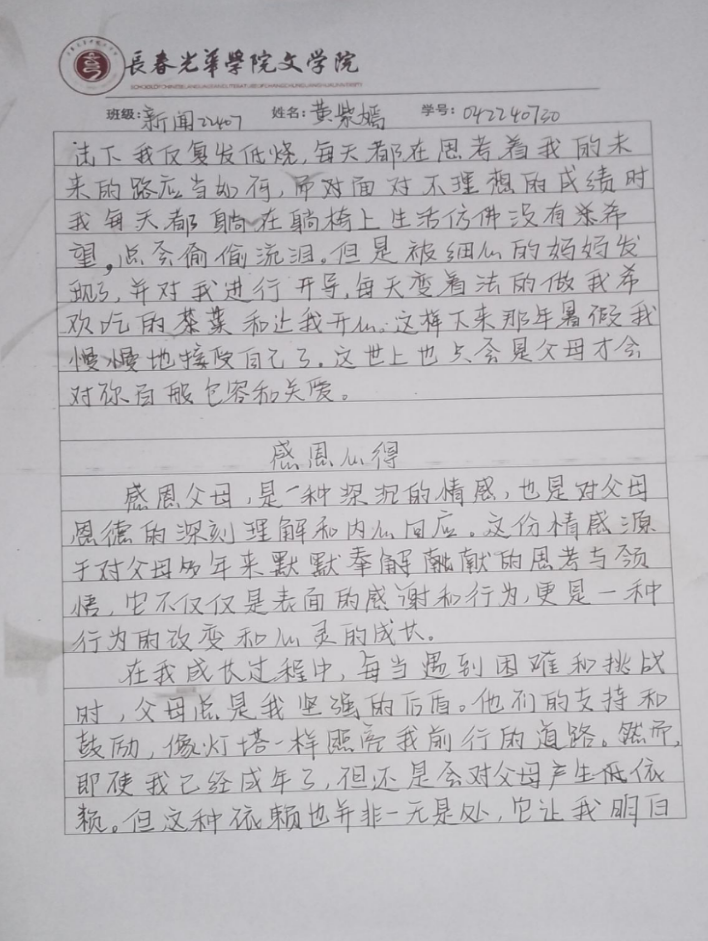 長春光華學院文学院
班级: 新闻22407 姓名: 黄紫嫣 学号: 042240730
法下我反复发低烧,每天都在思考着我的未
来的路应当如何,而对面对不理想的成绩时
我每天都躺在躺椅上生活仿佛没有希
望,总会偷偷流泪。但是被细心的妈妈发
现了,并对我进行开导,每天变着法的做我希
欢吃的菜和让我开心。这样下来那年暑假我
慢慢地接受自己了。这世上也只会是父母才会
对你百般包容和关爱。
感恩心得
感恩父母,是一种深沉的情感,也是对父母
恩德的深刻理解和内心回应。这份情感源
于对父母多年来默默奉献的思考与领
悟,它不仅仅是表面的感谢和行为,更是一种
行为的改变和心灵的成长。
在我成长过程中,每当遇到困难和挑战
时,父母总是我坚强的后盾。他们的支持和
鼓励,像灯塔一样照亮我前行的道路。然而,
即使我已经成年了,但还是会对父母产生依
赖。但这种依赖也并非一无是处,它让我明白